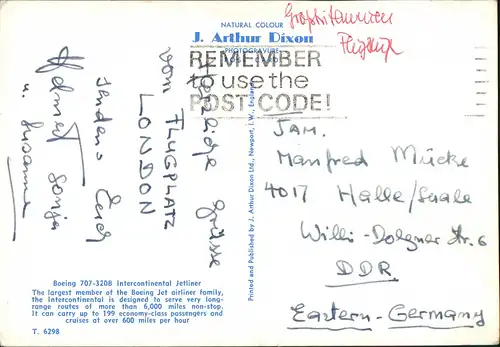 NATURAL COLOUR
J. Arthur Dixon
PHOTOGRAVURE
Großbritannien
Flugzeuge
REMEMBER
to use the
POST CODE!
Herzliche Grüsse
vom FLUGPLATZ
LONDON
senden Euch
Helmut Sonja
u. Susanne
Fam.
Manfred Mücke
4017 Halle/Saale
Willi-Dolgner Str. 6
DDR
Eastern-Germany
Printed and Published by J. Arthur Dixon Ltd., Newport, I.W., England.
Boeing 707-320B Intercontinental Jetliner
The largest member of the Boeing Jet airliner family,
the Intercontinental is designed to serve very long-
range routes of more than 6,000 miles non-stop.
It can carry up to 199 economy-class passengers and
cruises at over 600 miles per hour
T. 6298